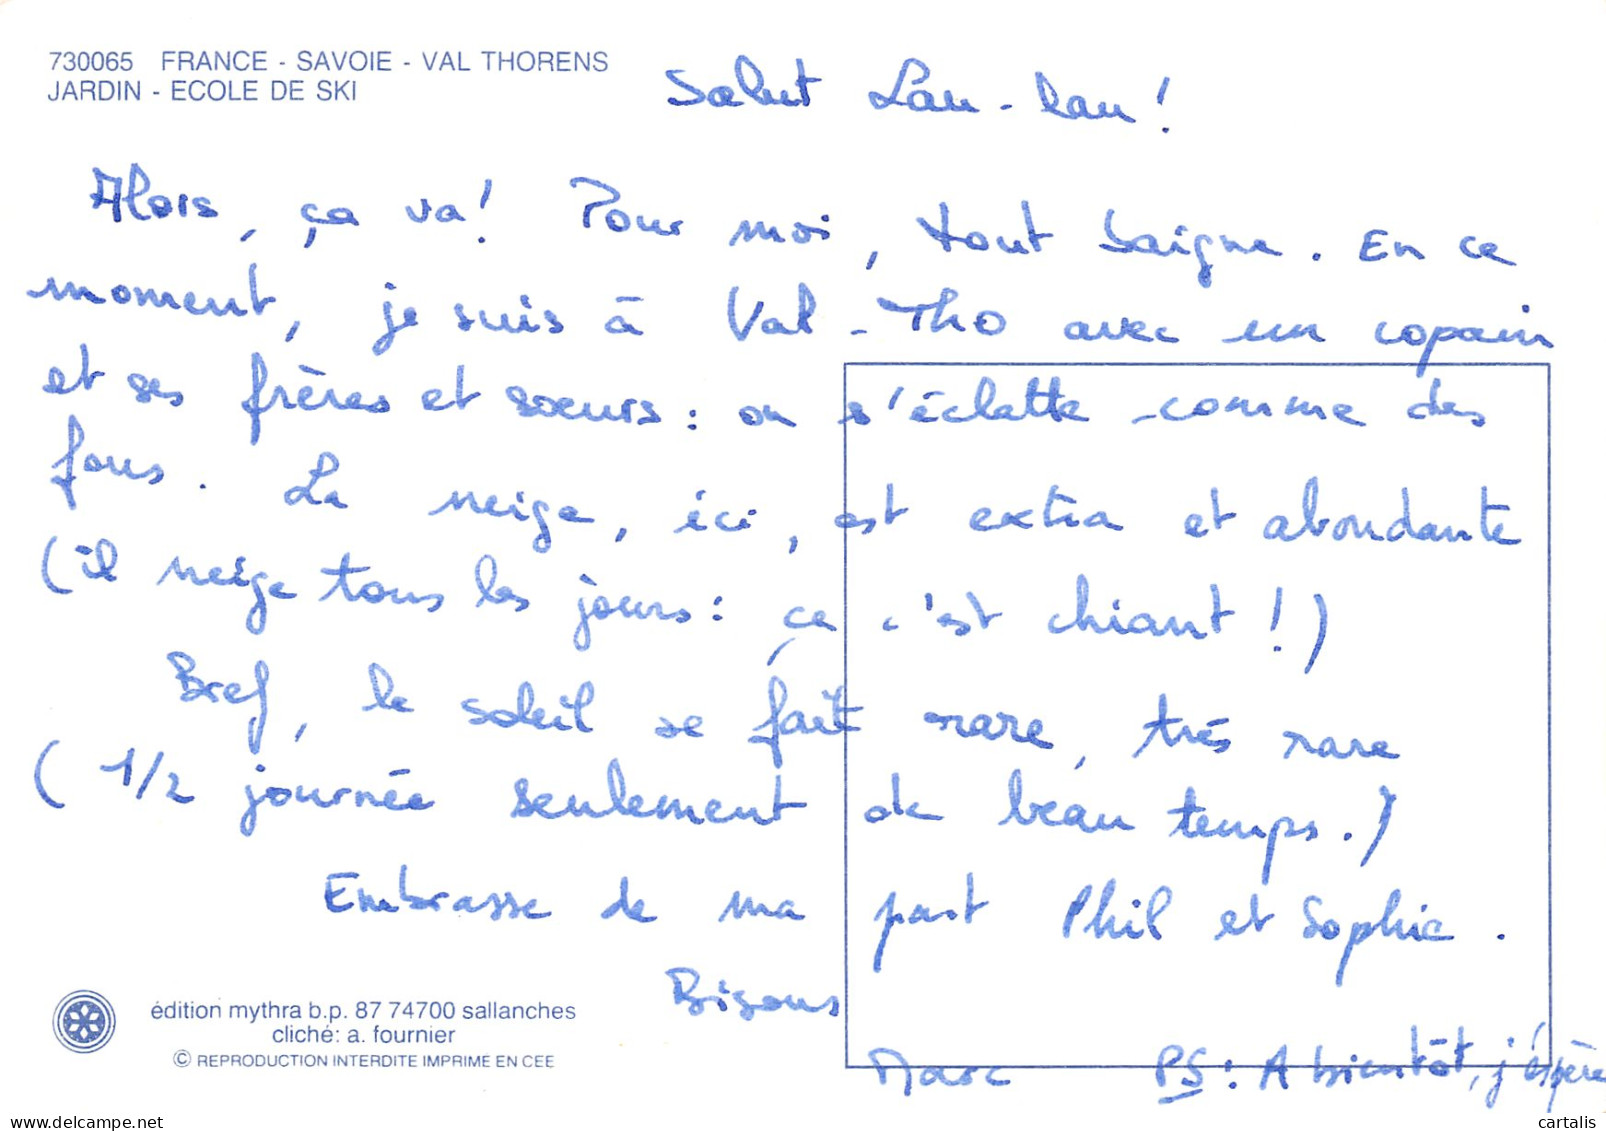 730065 FRANCE - SAVOIE - VAL THORENS
JARDIN - ECOLE DE SKI
Salut Lau-lau !
Alors, ça va ! Pour moi, tout baigne. En ce
moment, je suis à Val-Tho avec un copain
et ses frères et sœurs : on s'éclatte comme des
fous. La neige, ici, est extra et abondante
(il neige tous les jours : ça c'est chiant !)
Bref, le soleil se fait rare, très rare
(1/2 journée seulement de beau temps.)
Embrasse de ma part Phil et Sophie.
Bisous
Marc PS : A bientôt, j'éspère
édition mythra b.p. 87 74700 sallanches
cliché: a. fournier
© REPRODUCTION INTERDITE IMPRIME EN CEE
cartalis